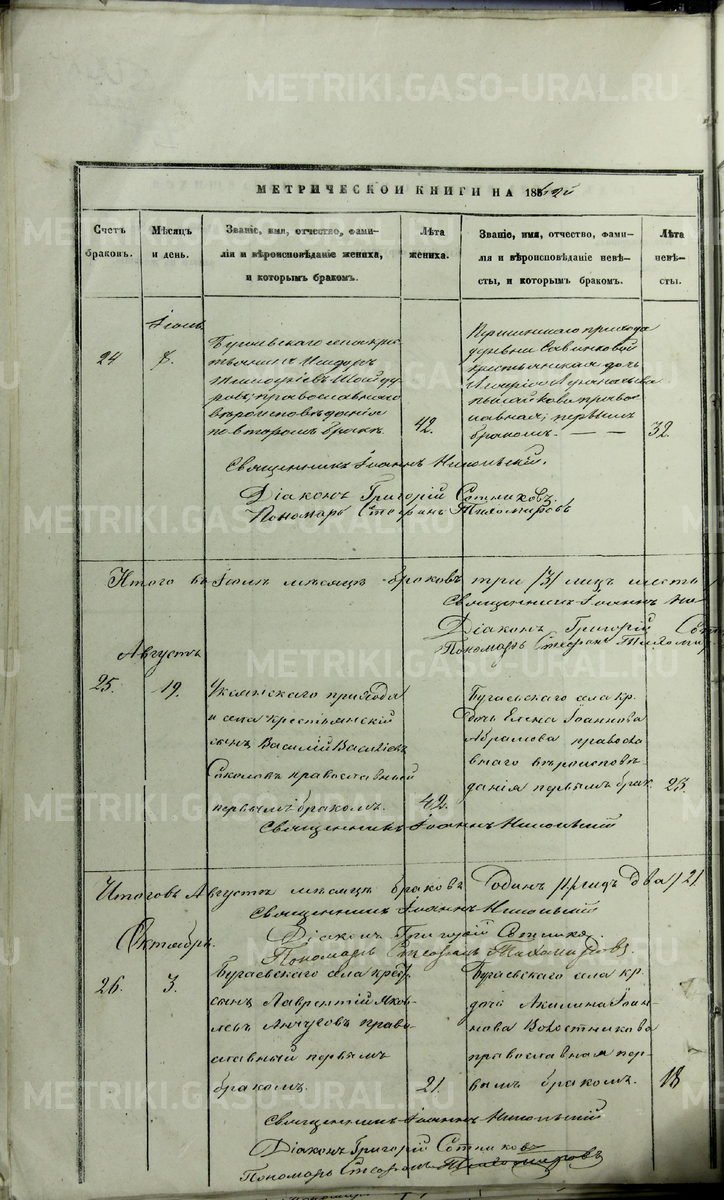 METRIKI.GASO-URAL.RU
МЕТРИЧЕСКОЙ КНИГИ НА 186
Счетъ браковъ.
Мѣсяцъ и день.
Званіе, имя, отчество, фами-
лія и вѣроисповѣданіе жениха,
и которымъ бракомъ.
Лѣта
жениха.
Званіе, имя, отчество, фами-
лія и вѣроисповѣданіе невѣ-
сты, и которымъ бракомъ.
Лѣта
невѣ-
сты.
24
Бугаевскаго села крес-
православнаго
вѣроисповѣданія
вторымъ бракомъ
42.
прихода
деревни Савинковой
крестьянская дочь
правос-
лавная, первымъ
бракомъ.
32.
Священникъ Іоаннъ Никольскій.
Діаконъ Григорій Сотниковъ.
Пономарь Стефанъ Тихомировъ
Итого въ мѣсяцѣ браковъ три /3/ лицъ шесть
Священникъ Іоаннъ Ни
Діаконъ Григорій Сот
Пономарь Стефанъ Тихомир
Августъ
25.
19.
прихода
и села крестьянскій
сынъ Василій Василіевъ
Соколовъ православный
первымъ бракомъ.
42.
Бугаевскаго села кр.
дочь Елена Іоаннова
Абрамова правосла-
внаго вѣроисповѣ-
данія первымъ брак.
23.
Священникъ Іоаннъ Никольскій
Итого въ Августѣ мѣсяцѣ браковъ одинъ /1/ лицъ два /2/
Священникъ Іоаннъ Никольскій
Діаконъ Григорій Сотниковъ
Пономарь Стефанъ Тихомировъ.
Октябрь.
26.
3.
Бугаевскаго села крес.
сынъ Лаврентій Яков-
левъ право-
славный первымъ
бракомъ.
21.
Бугаевскаго села кр.
дочь Акилина Іоан-
нова
православная пер-
вымъ бракомъ.
18
Священникъ Іоаннъ Никольскій
Діаконъ Григорій Сотниковъ
Пономарь Стефанъ Тихомировъ